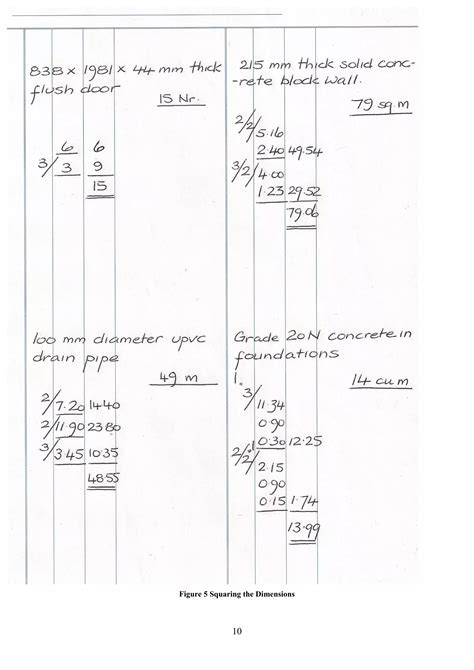 838 x 1981 x 44 mm thick
flush door
15 Nr.
6 6
3/ 3 9
15
215 mm thick solid conc-
-rete block wall.
79 sq.m
2/2/ 5.16
2.40 49.54
3/2/ 4.00
1.23 29.52
79.06
100 mm diameter upvc
drain pipe
49 m
2/ 7.20 14.40
2/ 11.90 23.80
3/ 3.45 10.35
48.55
Grade 20N concrete in
foundations
1.
14 cu m
3/ 11.34
0.90
0.30 12.25
2/2/ .1
2.15
0.90
0.15 1.74
13.99
Figure 5 Squaring the Dimensions
10